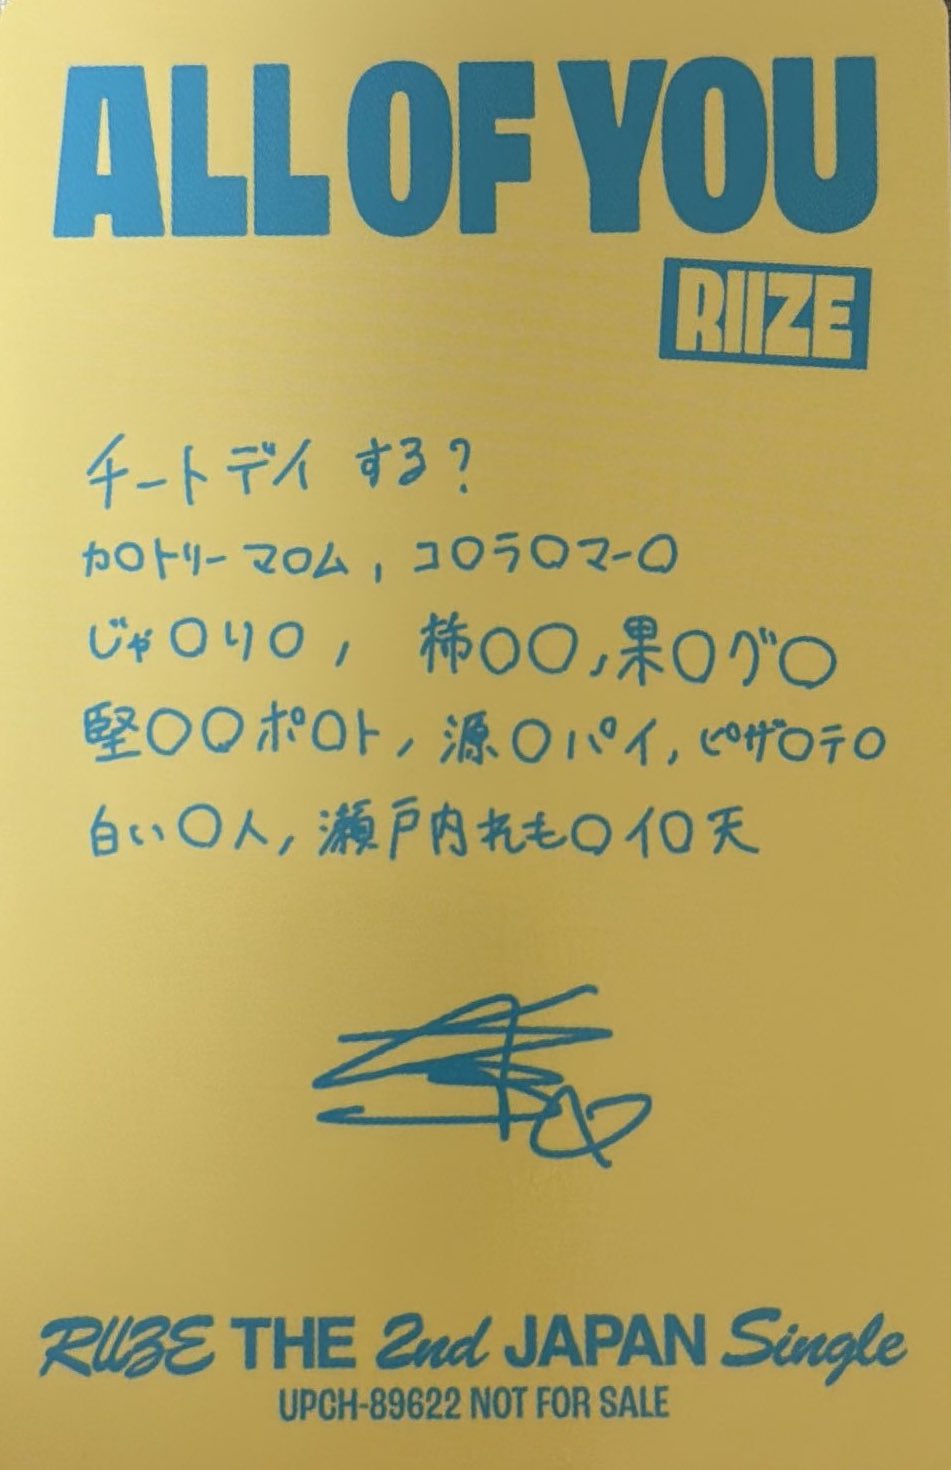 ALL OF YOU
RIIZE
チートデイ する?
カ○トリーマ○ム, コ○ラ○マーロ
じゃ○り○, 柿○○, 果○グ○
堅○○ポ○ト, 源○パイ, ピザ○テ○
白い○人, 瀬戸内れも○イ○天
RIIZE THE 2nd JAPAN Single
UPCH-89622 NOT FOR SALE